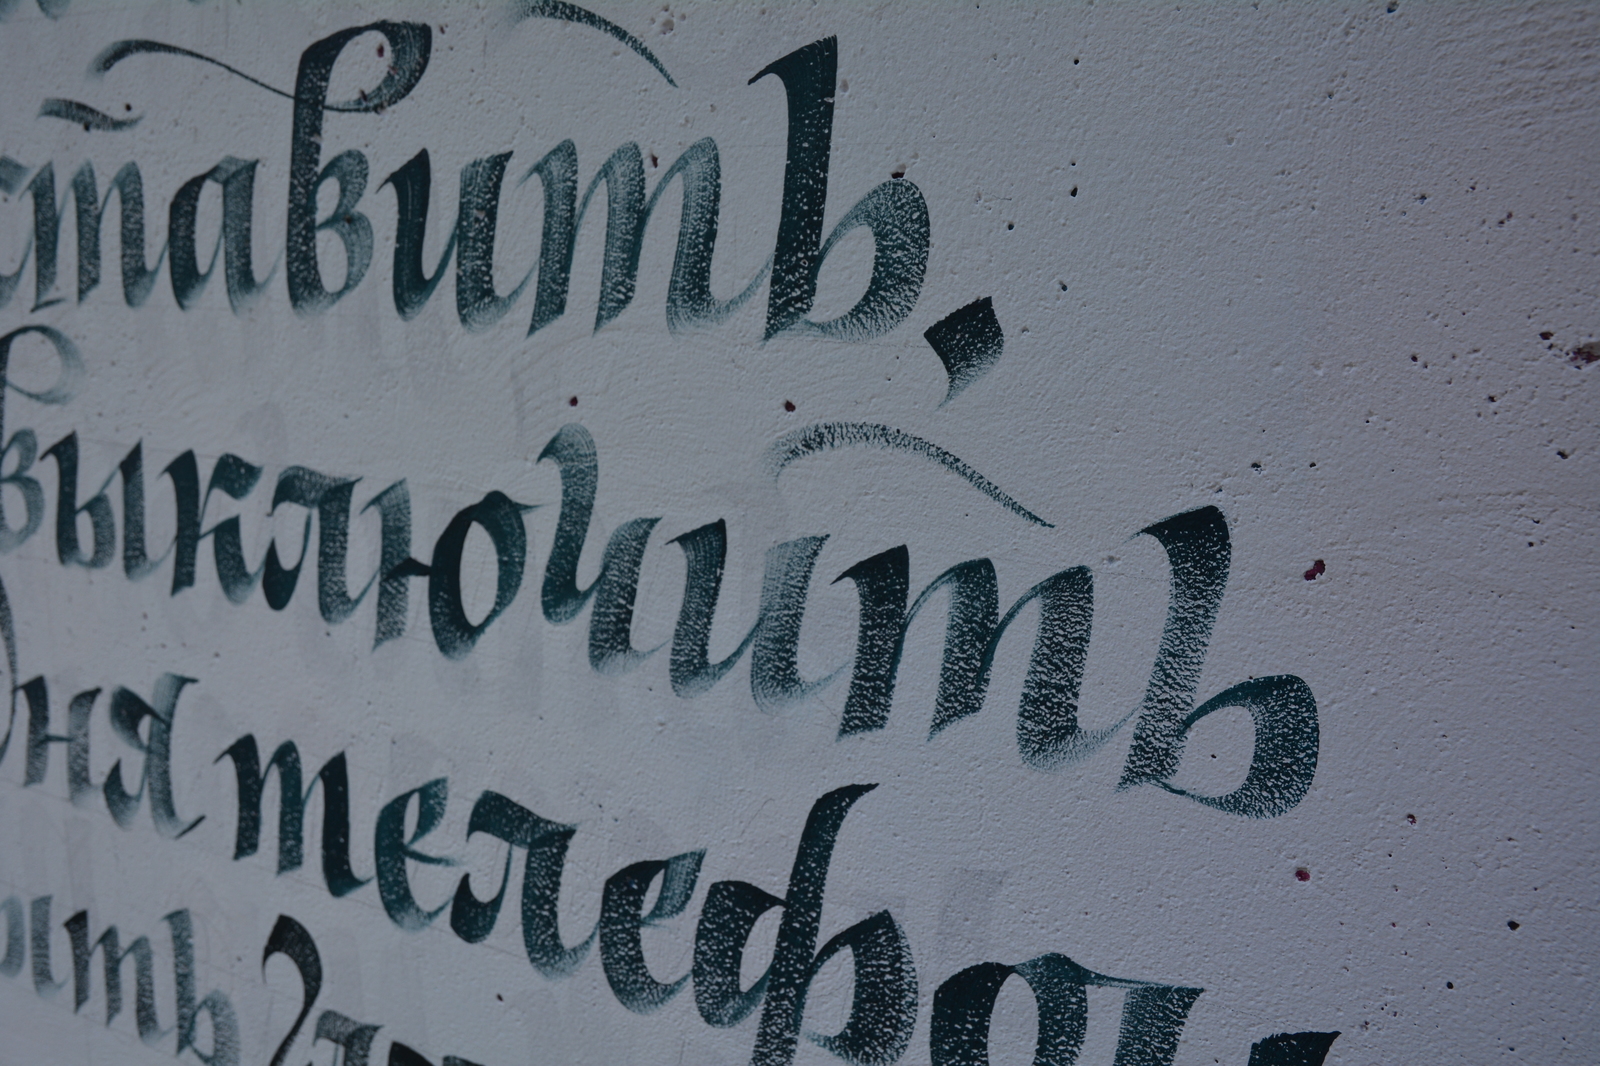 ставить,
выключить
ня телефон
ыть